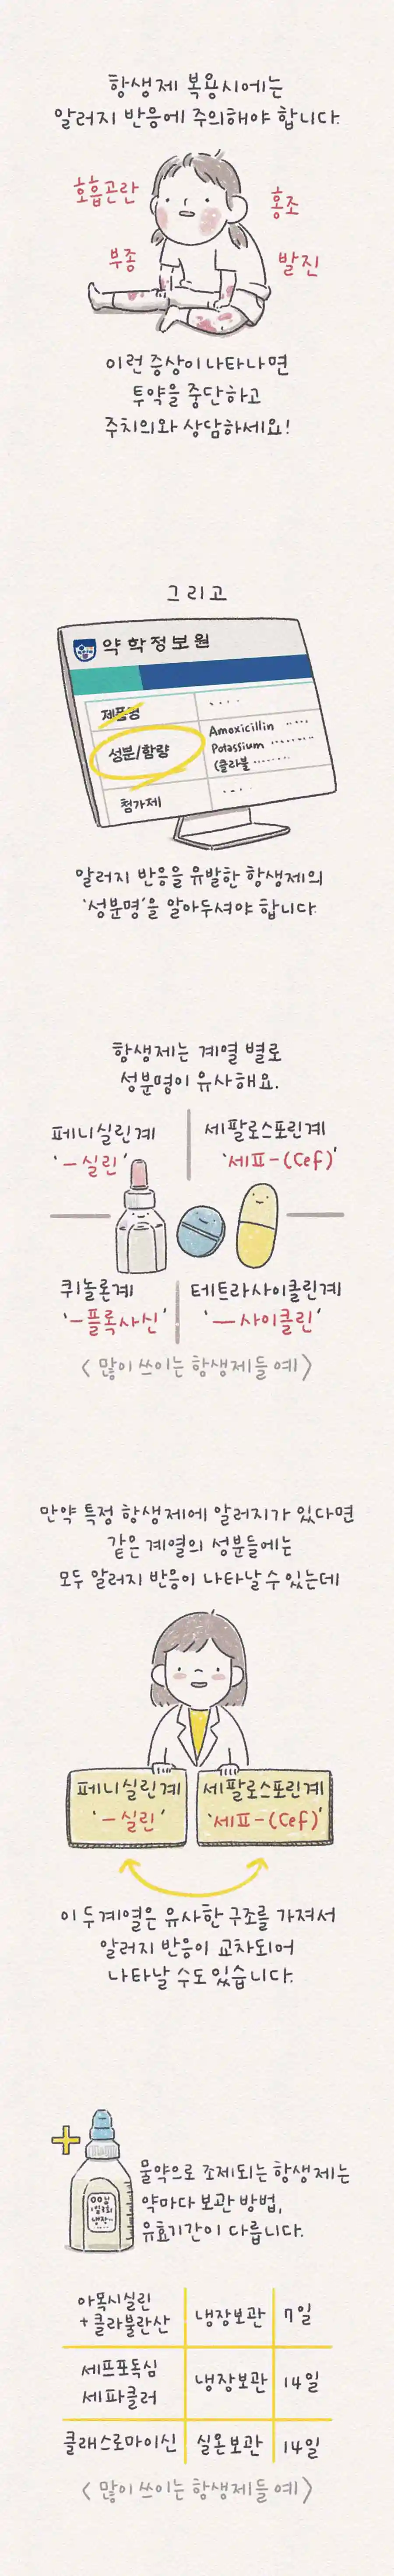 항생제 복용시에는
알러지 반응에 주의해야 합니다.
호흡곤란
홍조
부종
발진
이런 증상이 나타나면
투약을 중단하고
주치의와 상담하세요!
그리고
약학정보원
제품명
성분/함량
Amoxicillin ·····
Potassium ········
(클라불 ·······
첨가제
알러지 반응을 유발한 항생제의
'성분명'을 알아두셔야 합니다.
항생제는 계열 별로
성분명이 유사해요.
페니실린계
'-실린'
세팔로스포린계
'세프-(Cef)'
퀴놀론계
'-플록사신'
테트라사이클린계
'-사이클린'
<많이 쓰이는 항생제들 예>
만약 특정 항생제에 알러지가 있다면
같은 계열의 성분들에는
모두 알러지 반응이 나타날 수 있는데
페니실린계
'-실린'
세팔로스포린계
'세프-(Cef)'
이 두계열은 유사한 구조를 가져서
알러지 반응이 교차되어
나타날 수도 있습니다.
+
OO님
1일 2회
냉장
물약으로 조제되는 항생제는
약마다 보관 방법,
유효기간이 다릅니다.
아목시실린
+클라불란산
냉장보관
7일
세프포독심
세파클러
냉장보관
14일
클래스로마이신
실온보관
14일
<많이 쓰이는 항생제들 예>